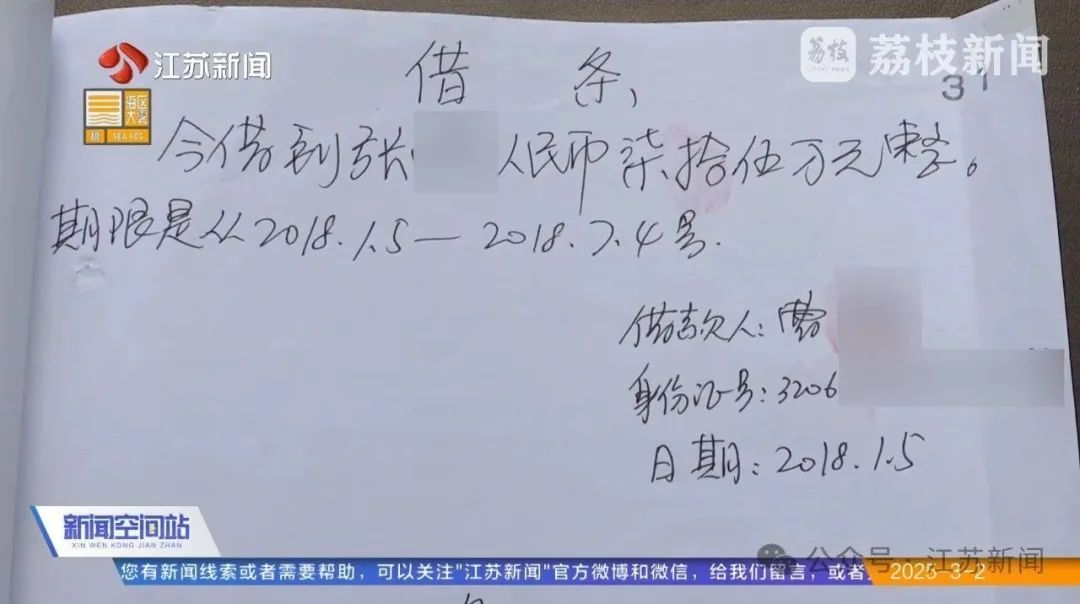 江苏新闻
荔枝
LITCHI NEWS
荔枝新闻
SEA FOG
31
借 条
今借到张 人民币柒拾伍万元整。
期限是从2018.1.5—2018.7.4号.
借款人:曹
身份证号:3206
日期:2018.1.5
新闻空间站
XIN WEN KONG JIAN ZHAN
公众号·江苏新闻
您有新闻线索或者需要帮助,可以关注"江苏新闻"官方微博和微信,给我们留言,或者
2025-3-2